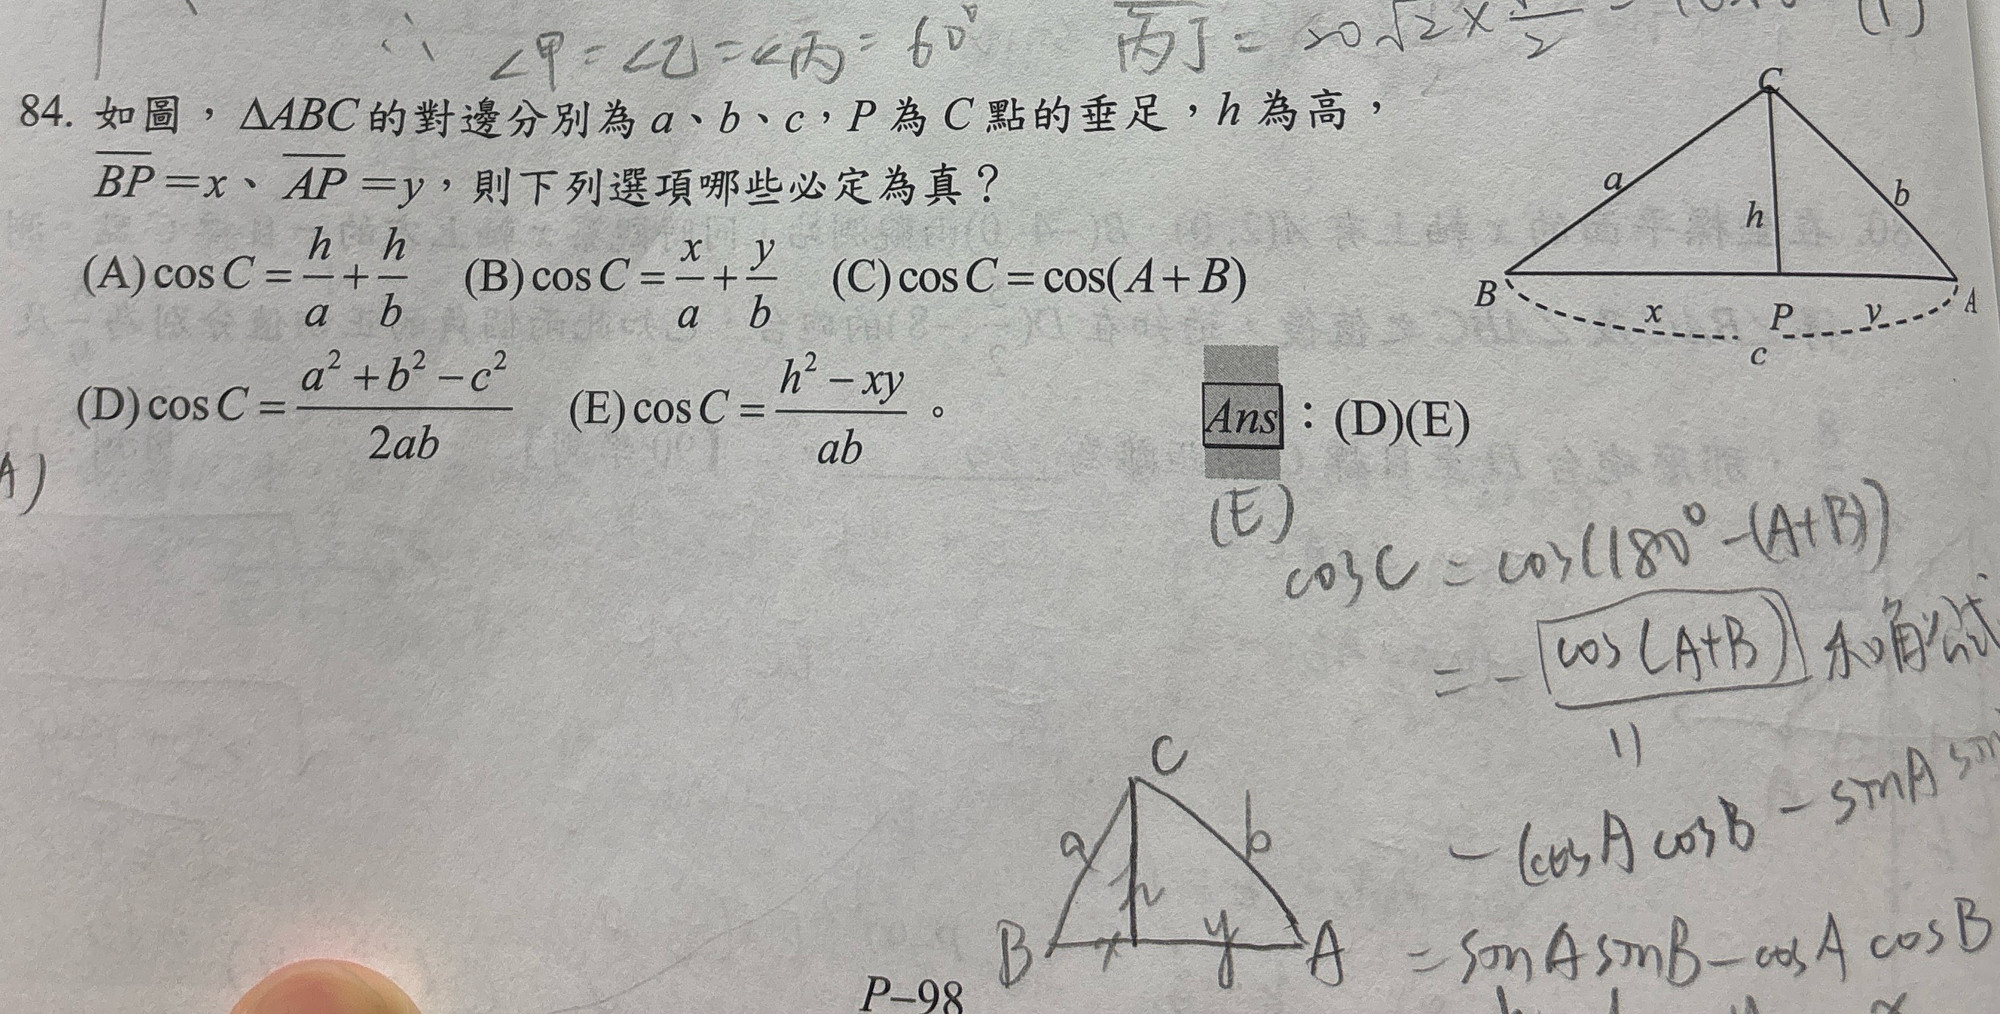 ∴ ∠甲=∠乙=∠丙=60° 丙丁=20√2×
84. 如圖，ΔABC的對邊分別為a、b、c，P為C點的垂足，h為高，
BP=x、AP=y，則下列選項哪些必定為真？
(A)cosC=h/a+h/b (B)cosC=x/a+y/b (C)cosC=cos(A+B)
(D)cosC=(a²+b²-c²)/2ab (E)cosC=(h²-xy)/ab。
Ans：(D)(E)
C
a
h
b
B
x
P
y
A
c
A)
(E)
cosC=cos(180°-(A+B))
=-cos(A+B) 和角公式
-(cosAcosB-sinA
=sinAsinB-cosAcosB
C
a
h
b
B
x
y
A
P-98